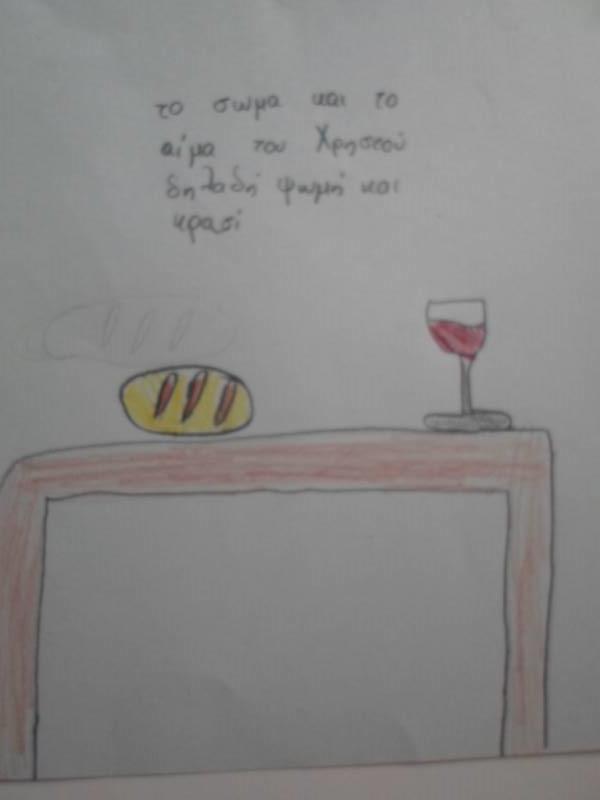 το σωμα και το
αίμα του Χρηστού
δηλαδή ψωμή και
κρασί